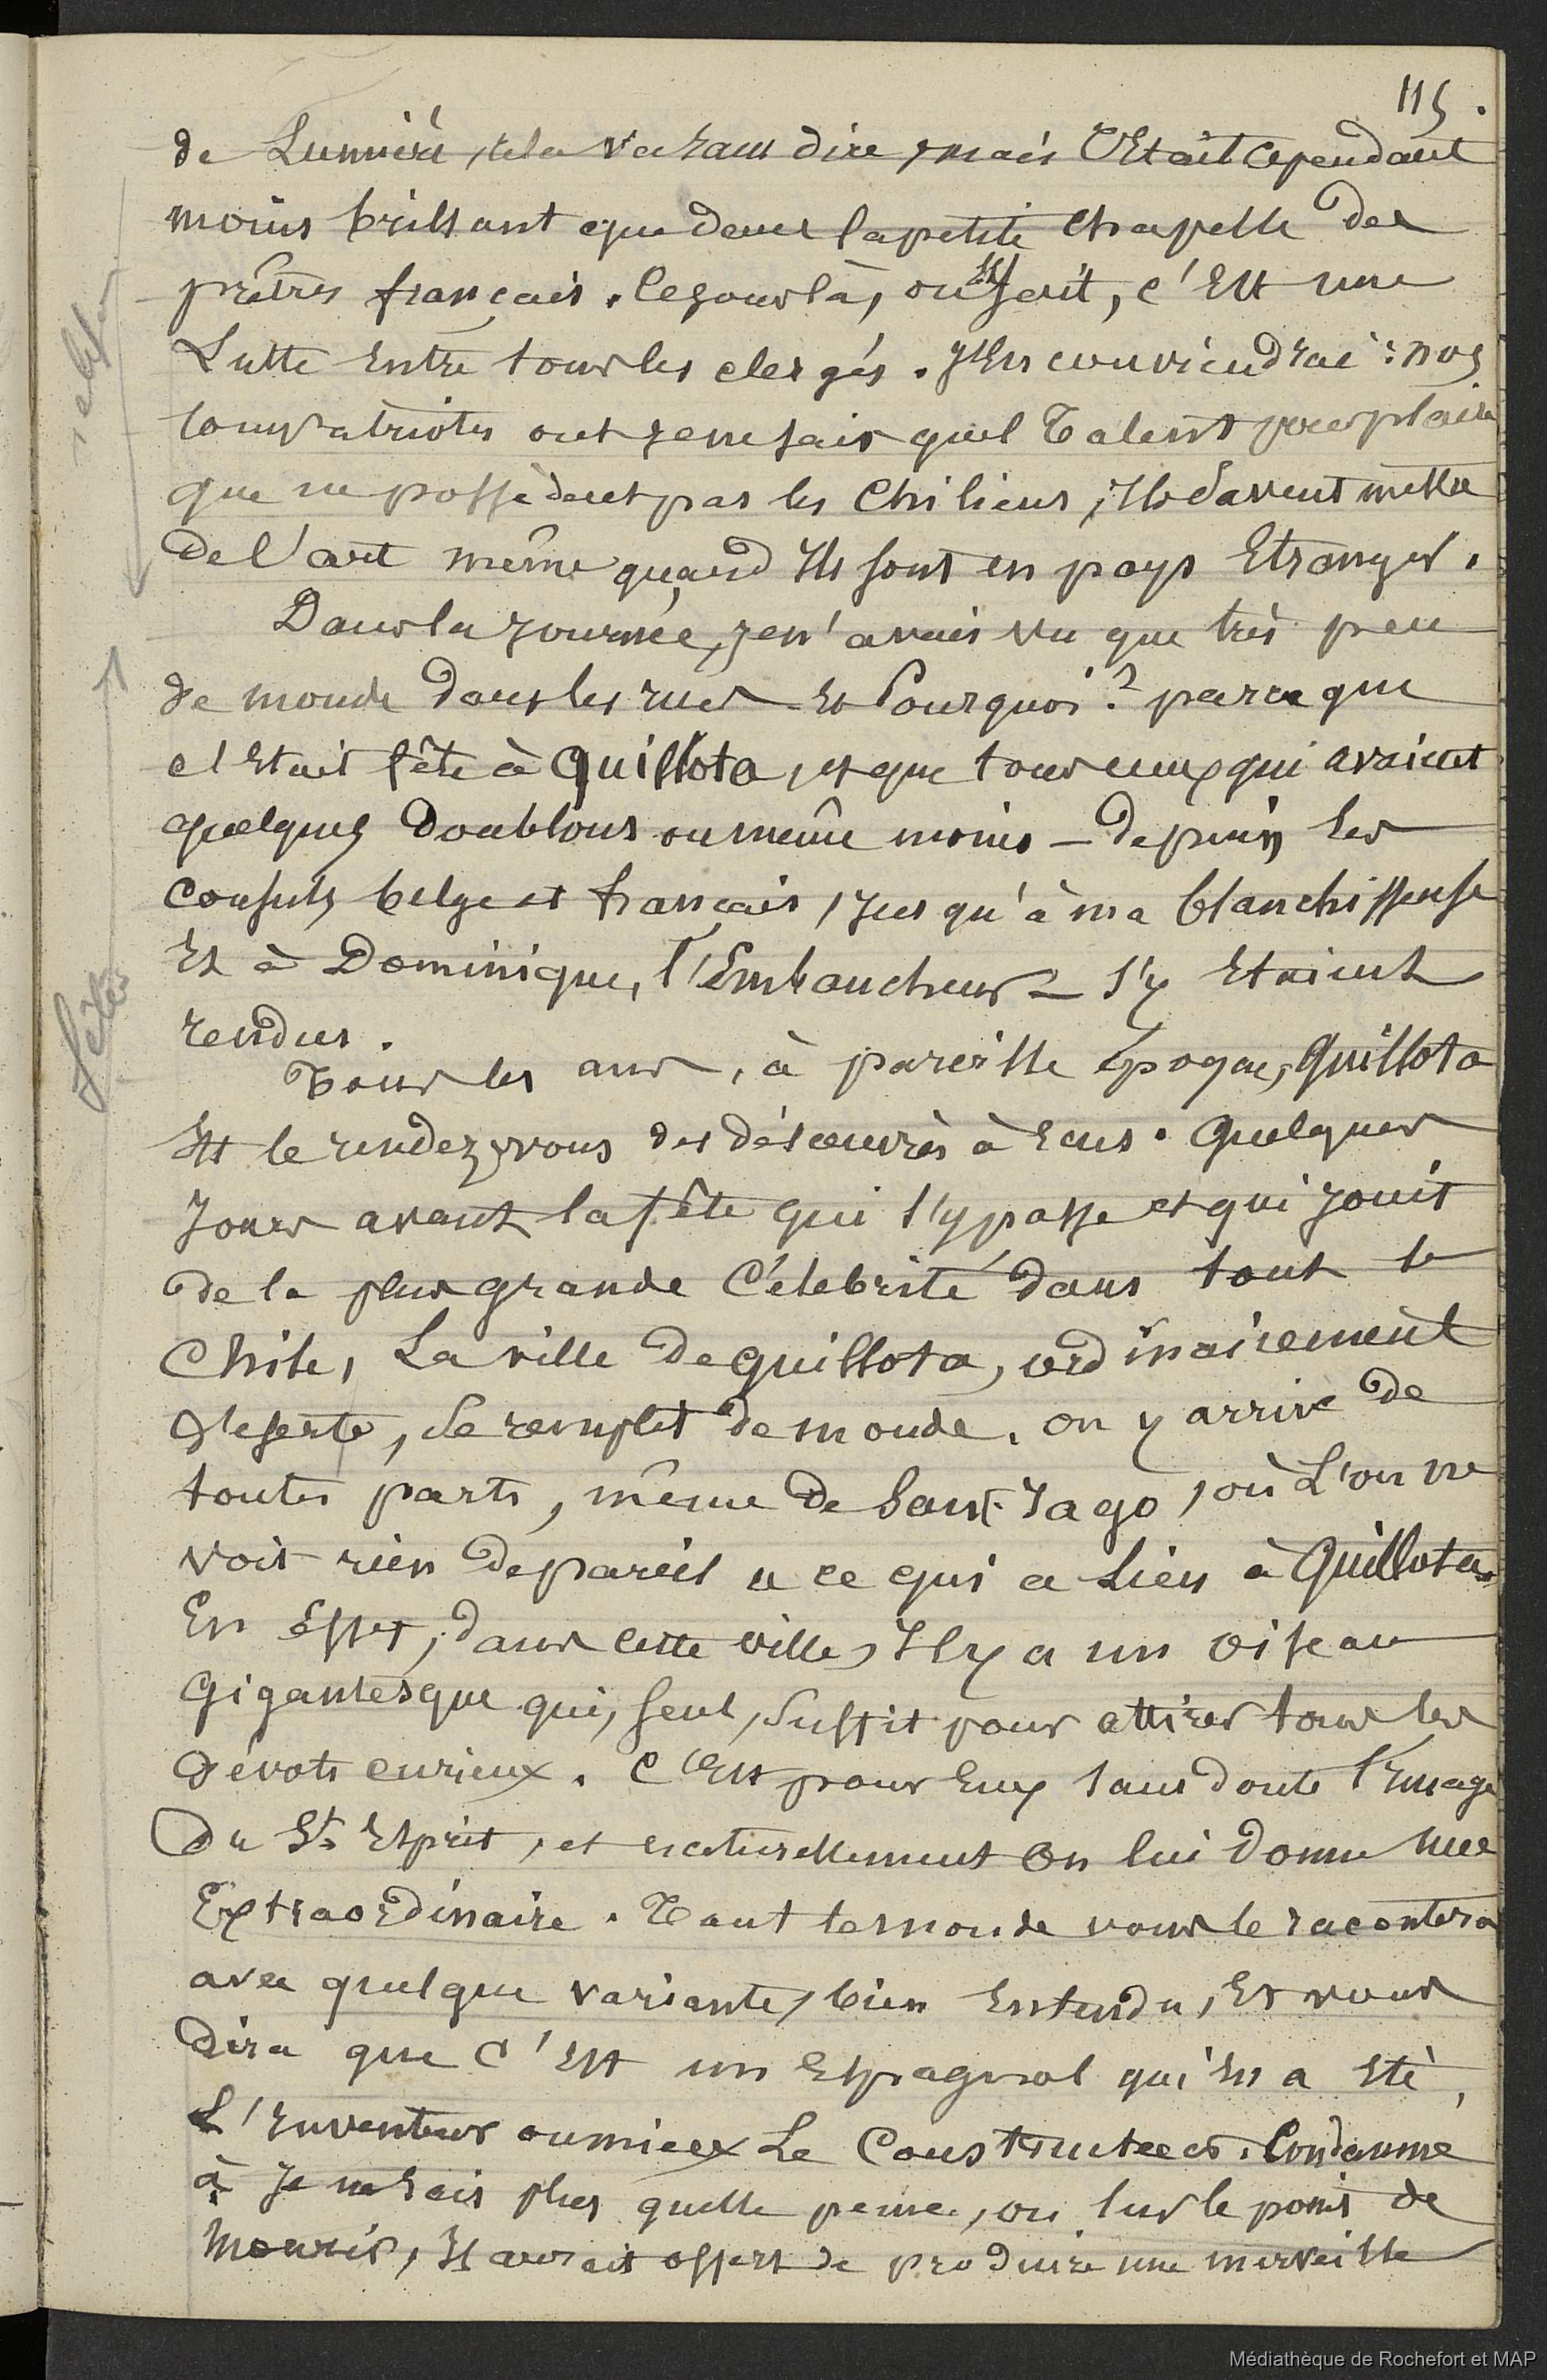 115.
de Lumière, cela va sans dire, mais C'Etait cependant
moins brillant que dans la petite chapelle des
prêtres français. Ce jour là, on le sait, c'Est une
Lutte Entre tous les clergés. J'En conviendrai : nos
compatriotes ont je ne sais quel Talent pour plaire
que ne possèdent pas les Chiliens ; Ils savent mettre
de l'art même quand Ils sont en pays Etranger.
Dans la journée, je n'avais vu que très peu
de monde dans les rues - Et Pourquoi ? parce que
c'Etait fête à Quillota, et que tous ceux qui avaient
quelques Doublons ou même moins - depuis les
consuls belge et français, jusqu'à ma blanchisseuse
Et à Dominique, l'Embaucheur - s'y Etaient
rendus.
Tous les ans, à pareille époque, Quillota
Est le rendez-vous des désœuvrés à Ecus. Quelques
Jours avant la fête qui s'y passe et qui jouit
de la plus grande Célébrité dans tout le
Chile, La ville de Quillota, ordinairement
déserte, se remplit de monde. on y arrive de
toutes parts, même de Sant-Iago, où L'on ne
voit rien de pareil à ce qui a Lieu à Quillota.
En Effet, dans cette ville, Il y a un oiseau
Gigantesque qui, seul, suffit pour attirer tous les
dévots curieux. C'Est pour Eux sans doute l'Image
Du St. Esprit, et naturellement on lui donne une
Extraordinaire. Tout le monde vous le racontera
avec quelque variante, bien Entendu, Et vous
Dira que C'Est un Espagnol qui En a Eté,
L'Inventeur ou mieux Le Constructeur. Condamné
à Je ne sais plus quelle peine, ou sur le point de
Mourir, Il aurait offert de produire une merveille
fêtes
Médiathèque de Rochefort et MAP